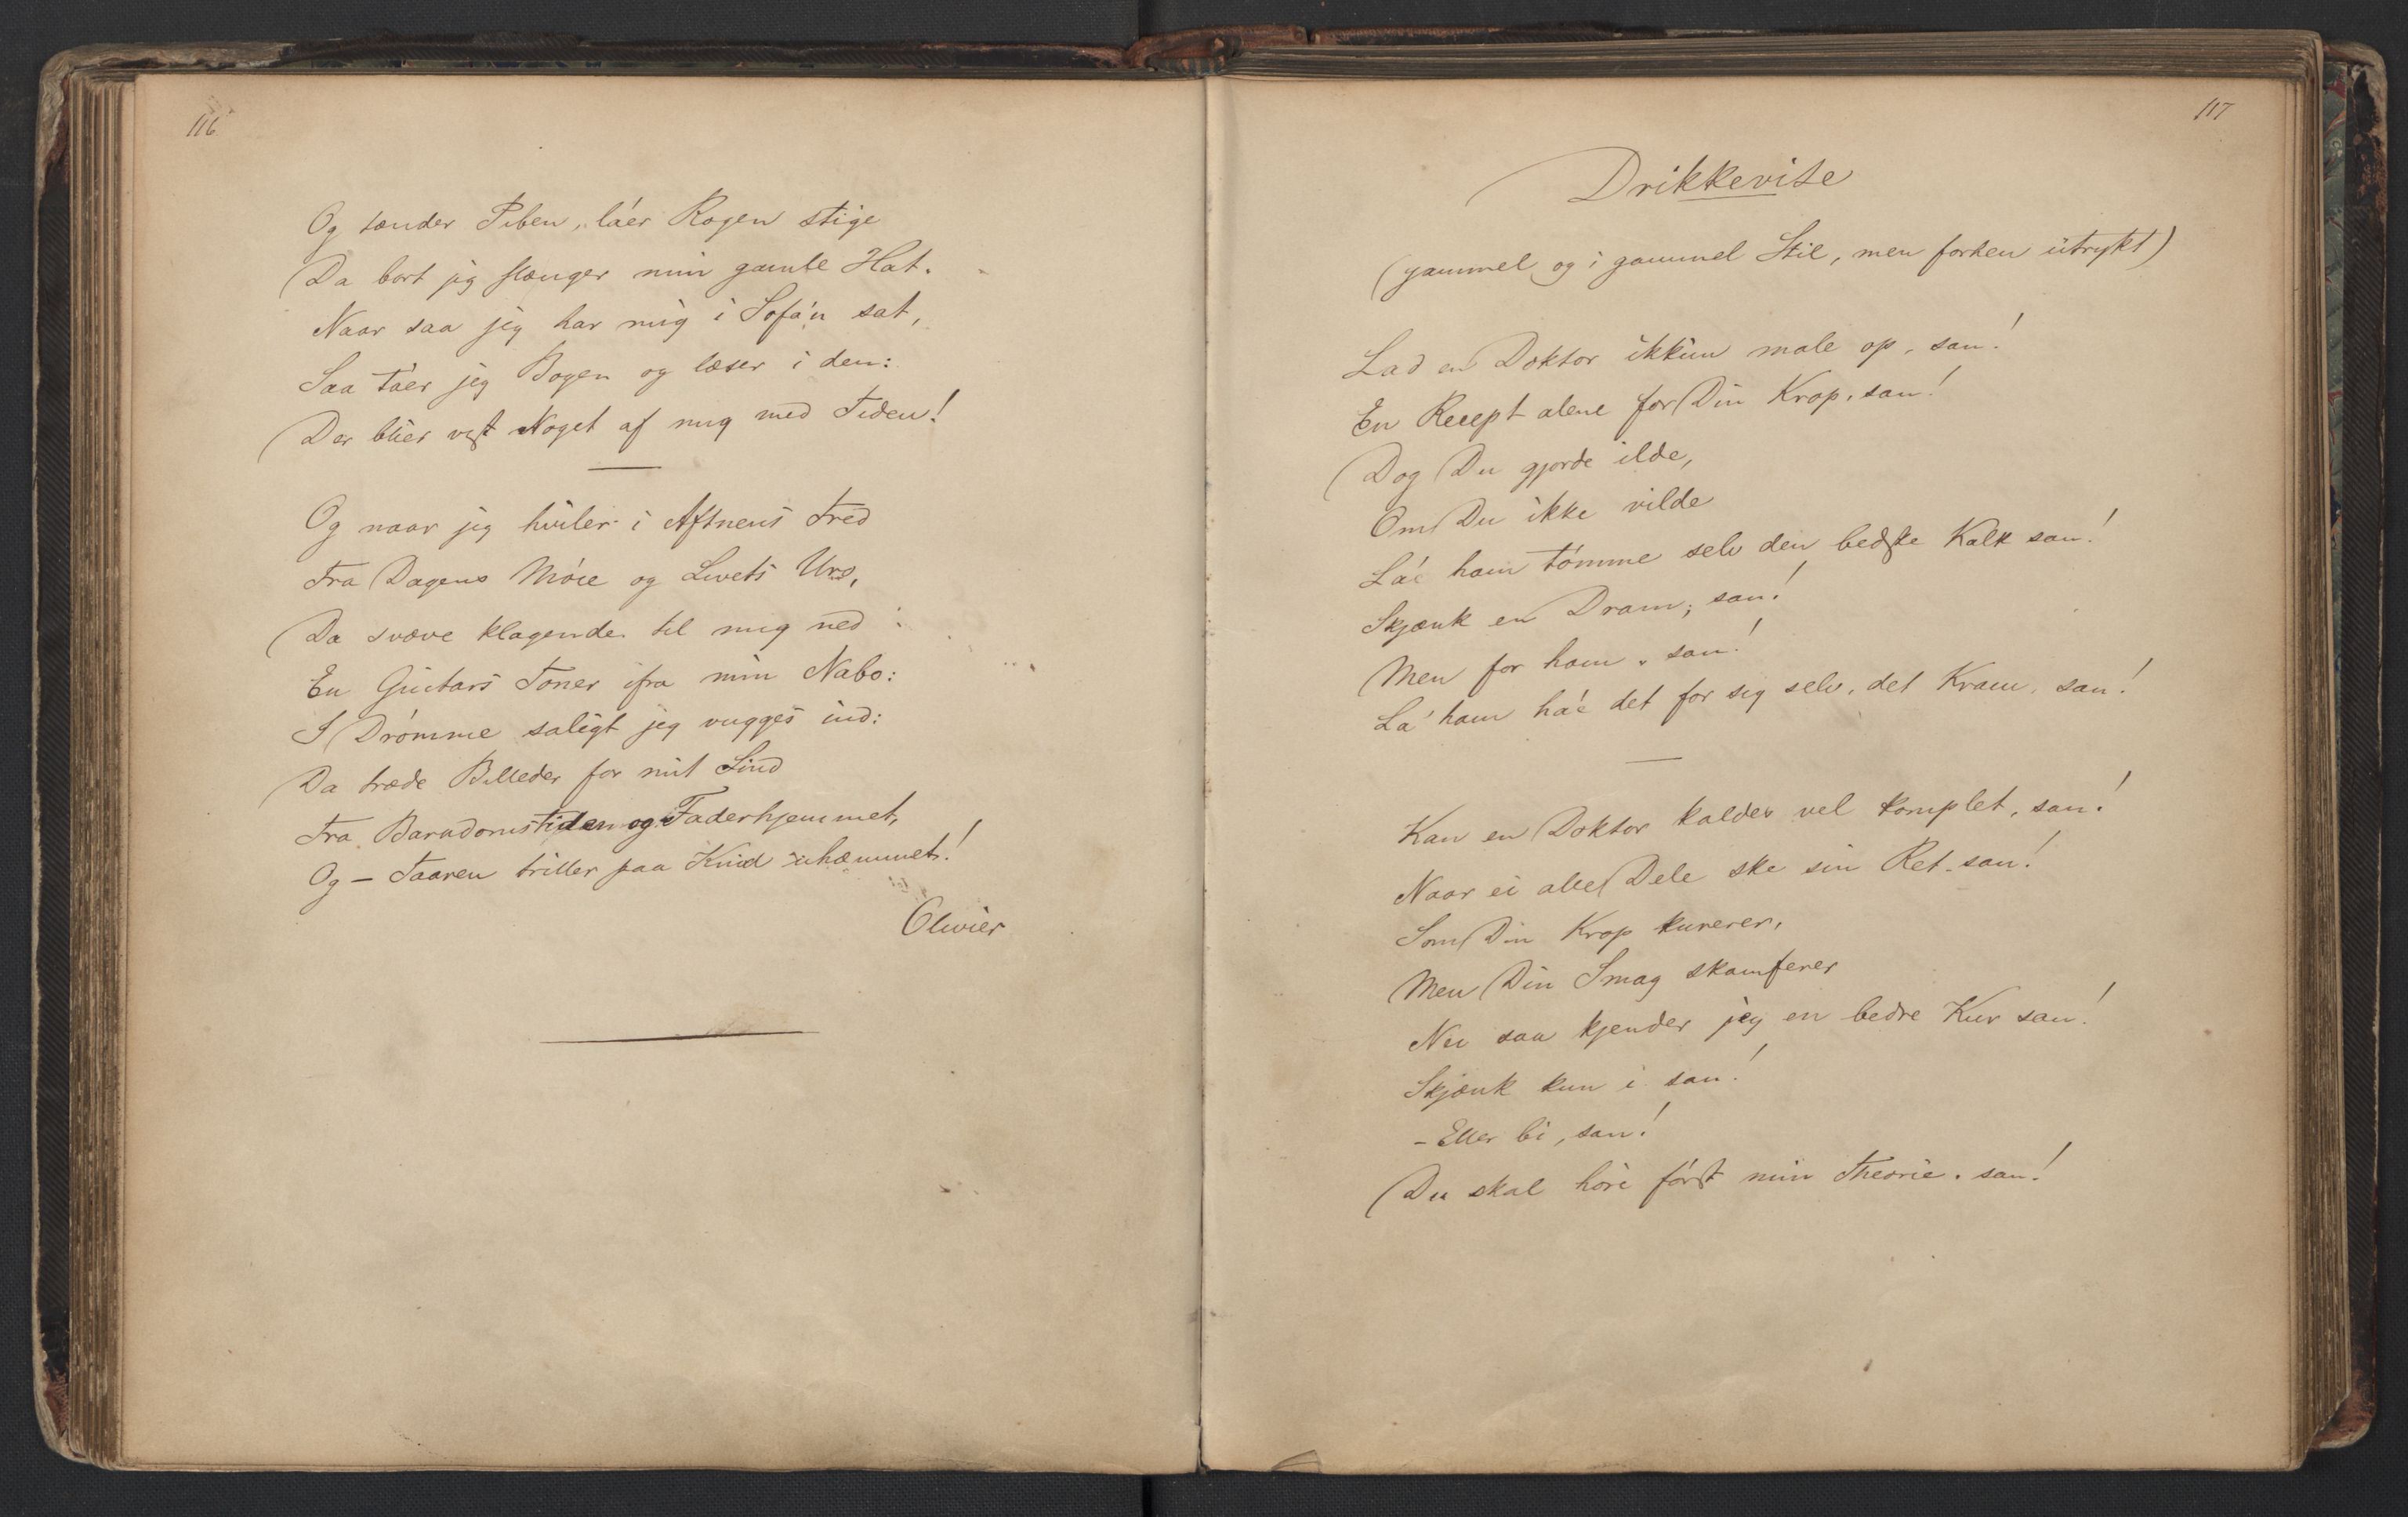 116
Og tænder Piben, láer Rogen stige
Da bort jig slænger min gamle Hat.
Naar saa jig har mig i Sofa'n sat,
Saa táer jeg Bogen og læser i den:
Der blier vist Noget af mig med Tiden!
Og naar jig hviler i Aftnens Fred
Fra Dagens Móie og Livets Uro,
Da svæve klagende til mig ned
En Guitars Toner ifra min Nabo:
I Drómme saligt jeg vugges ind:
Da træde Billeder for mit Sind
Fra Barndomstiden og Faderhjemmet,
Og — Taaren triller paa Kind uhæmmet!
Olivier
117
Drikkevise
(gammel og i gammel Stil, men forhen utrykt)
Lad en Doktor ikkun male op, san!
En Recept alene for Din Krop, san!
Dog Du gjorde ilde,
Om Du ikke vilde
La'e ham tómme selv den bedste Kalk san!
Skjænk en Dram, san!
Men for ham, san!
La' ham ha'e det for sig selv, det Kram, san!
Kan en Doktor kaldes vel komplet, san!
Naar ei alle Dele ske sin Ret, san!
Som Din Krop kurerer,
Men Din Smag skamferer
Nei saa kjender jeg en bedre Kur san!
Skjænk kun i san!
- Eller bi, san!
Du skal hóre fórst min Theorie, san!